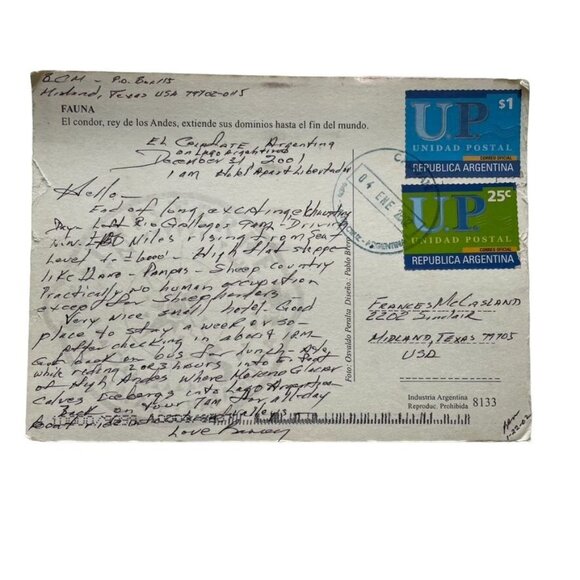 BCM - P.O. Box 115
Midland, Texas USA 79702-0115
FAUNA
El condor, rey de los Andes, extiende sus dominios hasta el fin del mundo.
El Calafate Argentina
on Lago Argentino
December 31, 2001
1 am Hotel Apart Libertador
Hello-
End of long exciting
Day - Left Rio Gallegos 9am - Driving
N.W. Miles rising from Sea
Level to 1600' - High flat steppe
like llano - Pampas - Sheep country
Practically no human occupation
except for Sheepherders
Very nice small hotel - Good
place to stay a week or so -
After checking in about 1pm
Got back on bus for lunch -
while riding 2 or 3 hours into E. foot
of High Andes where Moreno Glacier
calves Icebergs into Lago Argentino
Back on tour 9am for all day
boat ride
Love
$1
U.P.
UNIDAD POSTAL
CORREO OFICIAL
REPUBLICA ARGENTINA
25c
U.P.
UNIDAD POSTAL
CORREO OFICIAL
REPUBLICA ARGENTINA
04 ENE
Foto: Osvaldo Peralta Diseño: Pablo
Frances McCasland
2202 Sinclair
Midland, Texas 79705
USA
Industria Argentina
Reproduc. Prohibida
8133
1-22-02